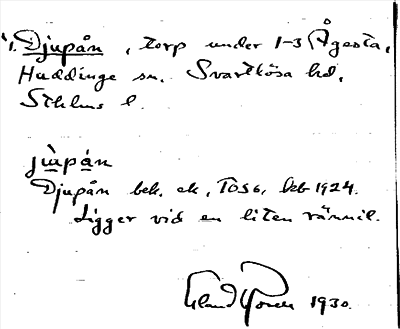 1. Djupån, torp under 1-3 Ågesta,
Huddinge sn. Svartlösa hd,
Sthlms l.
jùpán
Djupån bek. ek. T0S6, kbt 1924.
Ligger vid en liten rännil.
1930.